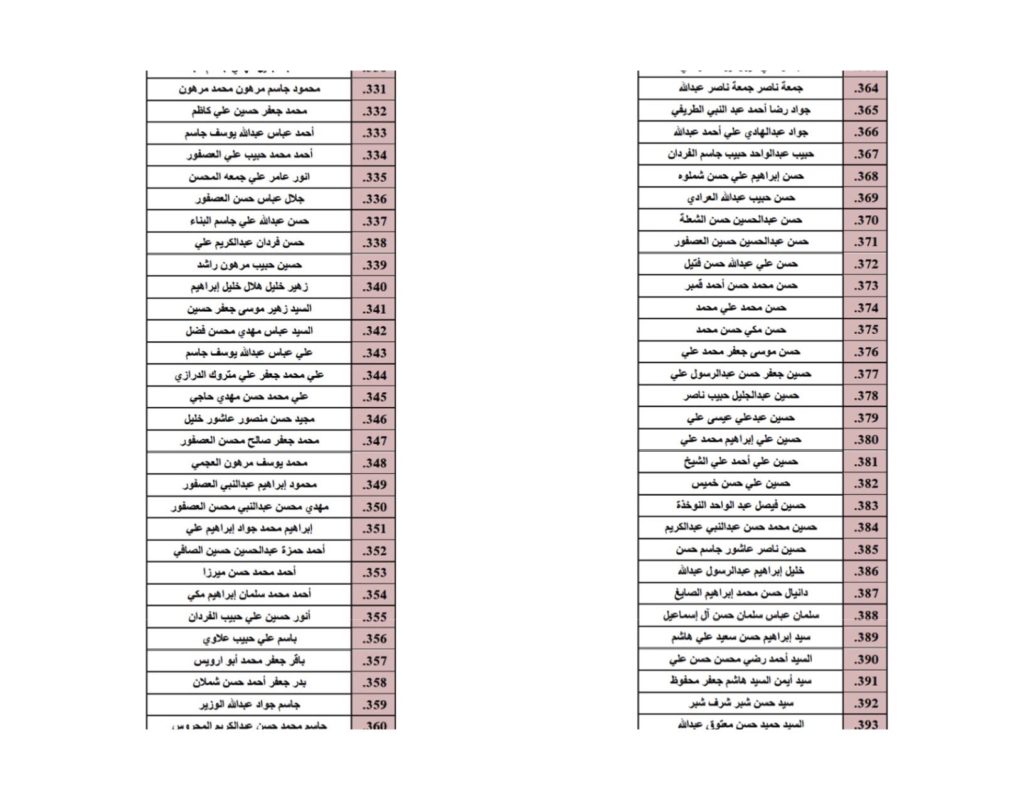 331. محمود جاسم مرهون محمد مرهون
332. محمد جعفر حسين علي كاظم
333. أحمد عباس عبدالله يوسف جاسم
334. أحمد محمد حبيب علي العصفور
335. انور عامر علي جمعه المحسن
336. جلال عباس حسن العصفور
337. حسن عبدالله علي جاسم البناء
338. حسن فردان عبدالكريم علي
339. حسين حبيب مرهون راشد
340. زهير خليل هلال خليل إبراهيم
341. السيد زهير موسى جعفر حسين
342. السيد عباس مهدي محسن فضل
343. علي عباس عبدالله يوسف جاسم
344. علي محمد جعفر علي متروك الدرازي
345. علي محمد حسن مهدي حاجي
346. مجيد حسن منصور عاشور خليل
347. محمد جعفر صالح محسن العصفور
348. محمد يوسف مرهون العجمي
349. محمود إبراهيم عبدالنبي العصفور
350. مهدي محسن عبدالنبي محسن العصفور
351. إبراهيم محمد جواد إبراهيم علي
352. أحمد حمزة عبدالحسين حسين الصافي
353. أحمد محمد حسن ميرزا
354. أحمد محمد سلمان إبراهيم مكي
355. أنور حسين علي حبيب الفردان
356. باسم علي حبيب علاوي
357. باقر جعفر محمد أبو ارويس
358. بدر جعفر أحمد حسن شملان
359. جاسم جواد عبدالله الوزير
360. جاسم محمد حسن عبدالكريم المحروس
364. جمعة ناصر جمعة ناصر عبدالله
365. جواد رضا أحمد عبد النبي الطريفي
366. جواد عبدالهادي علي أحمد عبدالله
367. حبيب عبدالواحد حبيب جاسم الفردان
368. حسن إبراهيم علي حسن شملوه
369. حسن حبيب عبدالله العرادي
370. حسن عبدالحسين حسن الشعلة
371. حسن عبدالحسين حسين العصفور
372. حسن علي عبدالله حسن فتيل
373. حسن محمد حسن أحمد قمبر
374. حسن محمد علي محمد
375. حسن مكي حسن محمد
376. حسن موسى جعفر محمد علي
377. حسين جعفر حسن عبدالرسول علي
378. حسين عبدالجليل حبيب ناصر
379. حسين عبدعلي عيسى علي
380. حسين علي إبراهيم محمد علي
381. حسين علي أحمد علي الشيخ
382. حسين علي حسن خميس
383. حسين فيصل عبد الواحد النوخذة
384. حسين محمد حسن عبدالنبي عبدالكريم
385. حسين ناصر عاشور جاسم حسن
386. خليل إبراهيم عبدالرسول عبدالله
387. دانيال حسن محمد إبراهيم الصايغ
388. سلمان عباس سلمان حسن آل إسماعيل
389. سيد إبراهيم حسن سعيد علي هاشم
390. السيد أحمد رضي محسن حسن علي
391. سيد أيمن السيد هاشم جعفر محفوظ
392. سيد حسن شبر شرف شبر
393. السيد حميد حسن معتوق عبدالله